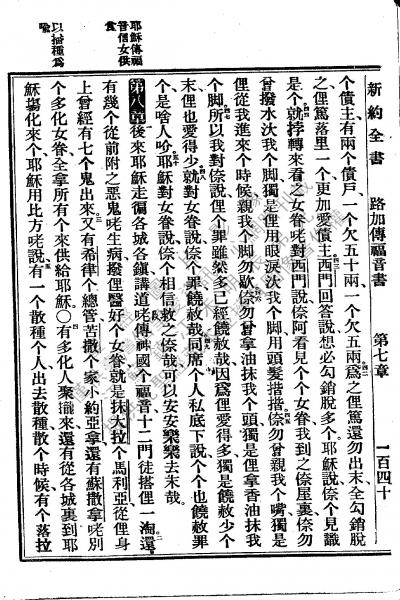 新約全書 路加傳福音書 第七章 一百四十
个債主、有兩个債戶、一个欠五十兩、一个欠五兩、爲之俚篤還勿出、末全勾銷脫
之、俚篤落里一个更加愛債主、西門回答說、想必勾銷脫多个、耶穌說、倷个見識
是个、就挬轉來看之女眷、咾對西門說、倷阿看見个个女眷、我到之倷屋裏、倷勿
曾撥水汰我个脚、獨是俚用眼淚汰我个脚、用頭髮揩揩、倷勿曾親我个嘴、獨是
俚從我進來个時候、親我个脚勿歇、倷勿曾拿油抹我个頭、獨是俚拿香油抹我
个脚、所以我對倷說、俚个罪雖然多、已經饒赦哉、因爲俚愛得多、獨是饒赦少个
末、俚也愛得少、就對女眷說、倷个罪饒赦哉、同席个人、私底下說、个个也饒赦罪
个、是啥人吤、耶穌對女眷說、倷个相信救之倷哉、可以安安樂樂去末哉、
第八章 後來耶穌走徧各城各鎮、講道咾傳神國个福音、十二門徒搭俚一淘、還
有幾个從前附之惡鬼咾生病、撥俚醫好个女眷、就是抹大拉个馬利亞、從俚身
上曾經有七个鬼出來、又有希律个總管苦撒个家小約亞拿、還有蘇撒拿、咾別
个多化女眷、全拿所有个來供給耶穌○有多化人聚攏來、還有從各城裏到耶
穌塲化來个、耶穌用比方咾說、有一个散種个人、出去散種、散个時候、有个落拉
耶穌傳福
音信女供
食
以播種爲
喩